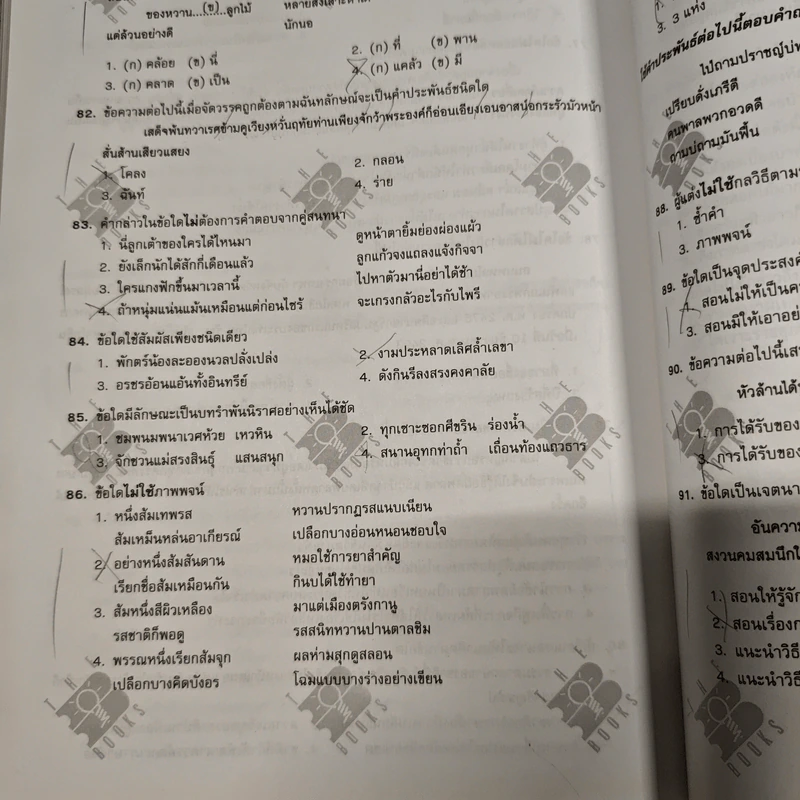 ของหวาน...(ข)...ลูกไม้
แต่ล้วนอย่างดี นักนอ
1. (ก) คล้อย (ข) นี่ 2. (ก) ที่ (ข) พาน
3. (ก) คลาด (ข) เป็น 4. (ก) แคล้ว (ข) มี
82. ข้อความต่อไปนี้เมื่อจัดวรรคถูกต้องตามฉันทลักษณ์จะเป็นคำประพันธ์ชนิดใด
เสด็จพ้นทวาเรศข้ามคูเวียงหวั่นฤทัยท่านเพียงจักว้าพระองค์ก็อ่อนเอียงเอนอาสน์อกระรัวมัวหน้า
สั่นส้านเสียวแสยง
1. โคลง 2. กลอน
3. ฉันท์ 4. ร่าย
83. คำกล่าวในข้อใดไม่ต้องการคำตอบจากคู่สนทนา
1. นี่ลูกเต้าของใครได้ไหนมา ดูหน้าตายิ้มย่องผ่องแผ้ว
2. ยังเล็กนักได้สักกี่เดือนแล้ว ลูกแก้วจงแถลงแจ้งกิจจา
3. ใครแกงฟักขึ้นมาเวลานี้ ไปหาตัวมานี่อย่าได้ช้า
4. ถ้าหนุ่มแน่นแม้นเหมือนแต่ก่อนไซร้ จะเกรงกลัวอะไรกับไพรี
84. ข้อใดใช้สัมผัสเพียงชนิดเดียว
1. พักตร์น้องละอองนวลปลั่งเปล่ง 2. งามประหลาดเลิศล้ำเลขา
3. อรชรอ้อนแอ้นทั้งอินทรีย์ 4. ดังกินรีลงสรงคงคาลัย
85. ข้อใดมีลักษณะเป็นบทรำพันนิราศอย่างเห็นได้ชัด
1. ชมพนมพนาเวศห้วย เหวหิน 2. ทุกเซาะซอกศีขริน ร่องน้ำ
3. จักชวนแม่สรงสินธุ์ แสนสนุก 4. สนานอุทกท่าถ้ำ เถื่อนท้องแถวธาร
86. ข้อใดไม่ใช้ภาพพจน์
1. หนึ่งส้มเทพรส หวานปรากฏรสแนบเนียน
ส้มเหม็นหล่นอาเกียรณ์ เปลือกบางอ่อนหนอนชอบใจ
2. อย่างหนึ่งส้มสันดาน หมอใช้การยาสำคัญ
เรียกชื่อส้มเหมือนกัน กินบได้ใช้ทำยา
3. ส้มหนึ่งสีผิวเหลือง มาแต่เมืองตรังกานู
รสชาติก็พอดู รสสนิทหวานปานตาลชิม
4. พรรณหนึ่งเรียกส้มจุก ผลห่ามสุกดูสลอน
เปลือกบางคิดบังอร โฉมแบบบางร่างอย่างเขียน
3. 3 แห่ง
เปรียบดั่งเภรีดี
คนพาลพวกอวดดี
88. ผู้แต่งไม่ใช้กลวิธีตาม
1. ซ้ำคำ
3. ภาพพจน์
89. ข้อใดเป็นจุดประสงค์
1. สอนไม่ให้เป็นค
3. สอนมิให้เอาอย่
90. ข้อความต่อไปนี้เส
หัวล้านได้
1. การได้รับของ
3. การได้รับของ
91. ข้อใดเป็นเจตนา
อันความ
สงวนคมสมนึกใ
1. สอนให้รู้จัก
2. สอนเรื่องก
3. แนะนำวิธี
4. แนะนำวิธี
THE
BOOKS